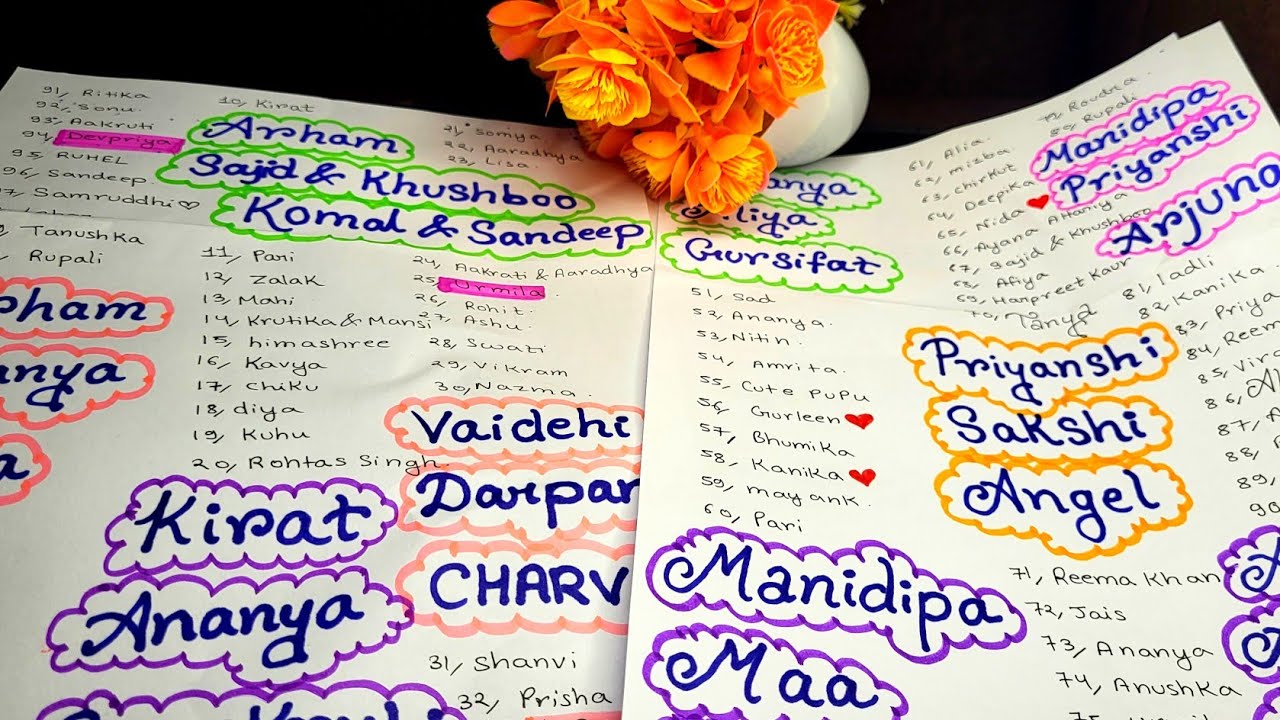 91, Ritika
92, Sonu.
93, Aakruti
94, Devpriya
95, RUHEL
96, Sandeep.
Samruddhi
10, Kirat
Arham
Sajid & Khushboo
Komal & Sandeep
21, Somya
22, Aaradhya
23, Lisa.
Tanushka
Rupali
11, Pari
12, Zalak
13, Mahi
14, Krutika & Mansi
15, himashree
16, Kavya
17, Chiku
18, diya
19, Kuhu
20, Rohtas Singh.
Aakrati & Aaradhya
25, Urmila
26, Rohit
27, Ashu
28, Swati
29, Vikram
30, Nazma
Vaidehi
Darpan
CHARV
Kirat
Ananya
31, Shanvi
32, Prisha
Aliya
Gursifat
51, Sad
52, Ananya.
53, Nitin
54, Amrita.
55, Cute PUPU
56, Gurleen
57, Bhumika
58, Kanika
59, mayank.
60, Pari
61, Alia
62, misba
63, chirkut
64, Deepika
65, Nida
66, Ayana
67, Sajid & Khushboo
68, Afiya
69, Harpreet Kaur
70, Tanya
79, Roudra
80, Rupali
Manidipa
Priyanshi
Arjuna
81, ladli
82, Kanika
83, Priya
84, Reem
85, Vira
86,
87,
88,
89,
90
Priyanshi
Sakshi
Angel
Manidipa
Maa
71, Reema Khan
72, Jais
73, Ananya
74, Anushka